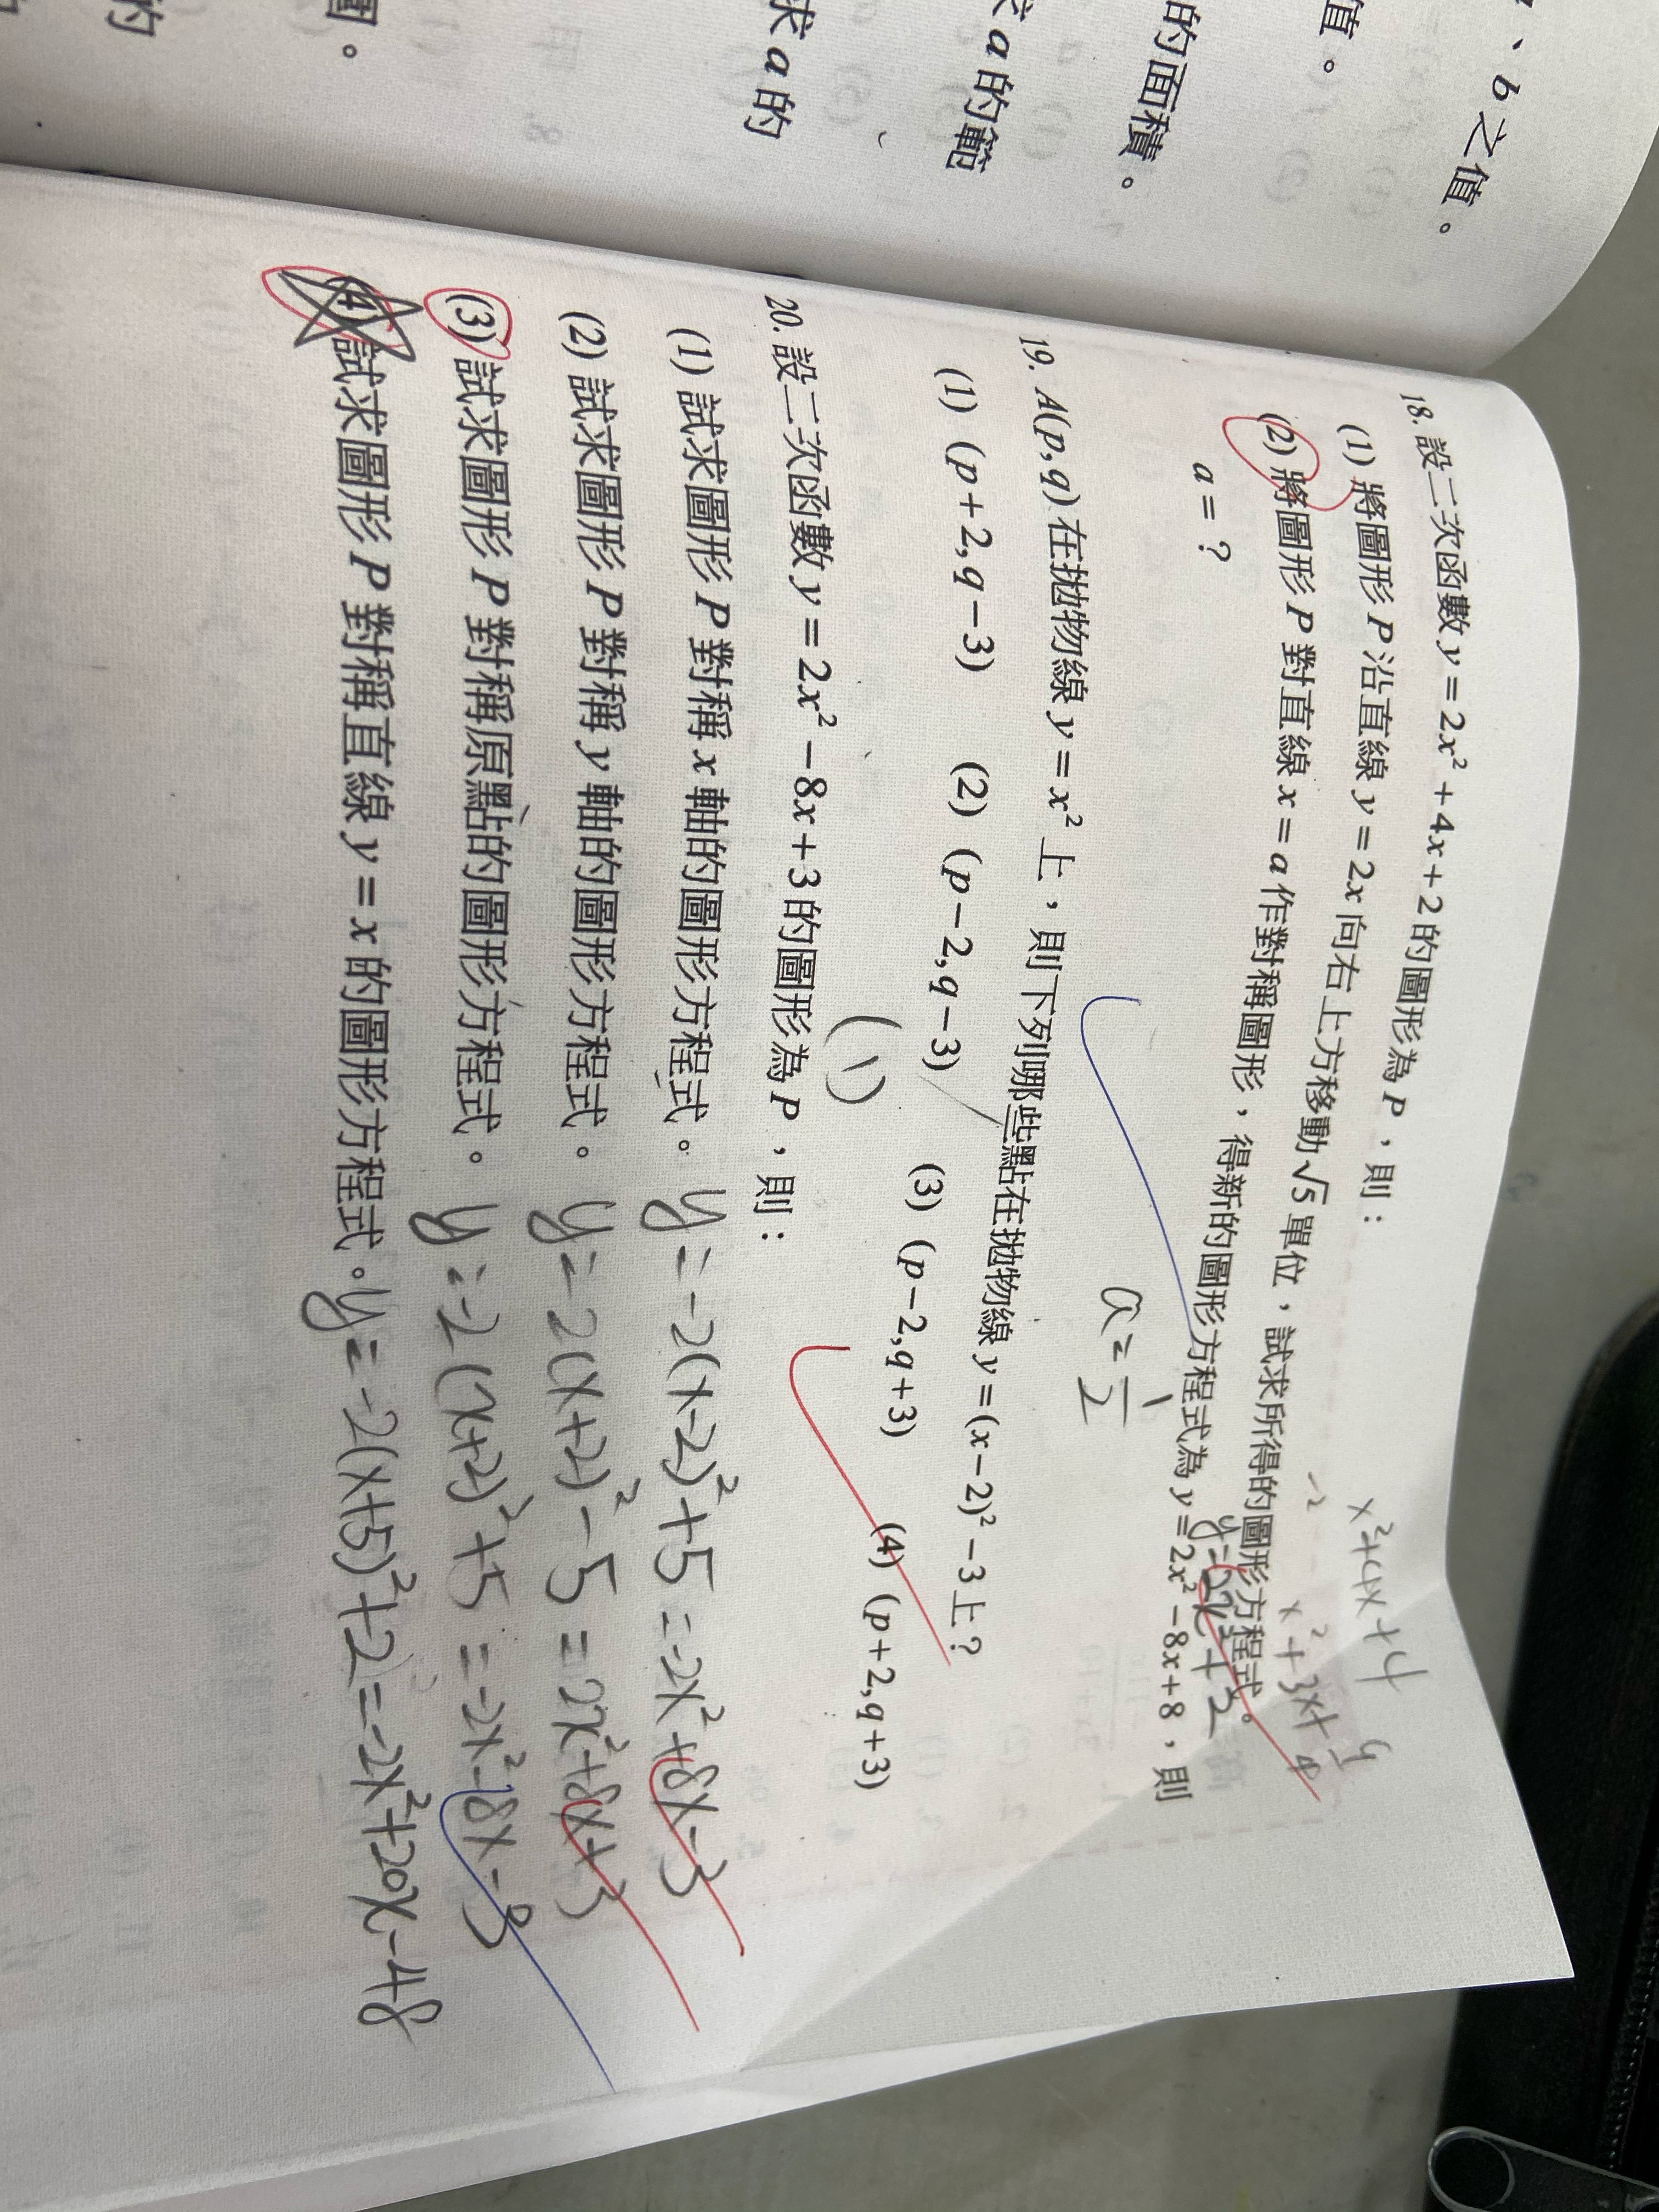 、b之值。
值。
的面積。
求a的範
求a的
圍。
的
18. 設二次函數 y = 2x² + 4x + 2 的圖形為 P，則：
(1) 將圖形 P 沿直線 y = 2x 向右上方移動 √5 單位，試求所得的圖形方程式。
(2) 將圖形 P 對直線 x = a 作對稱圖形，得新的圖形方程式為 y = 2x² − 8x + 8，則
a = ？
x²+4x+4
-2
x²+3x+9/4
y=2x²+2
a=1/2
19. A(p, q) 在拋物線 y = x² 上，則下列哪些點在拋物線 y = (x − 2)² − 3 上？
(1) (p + 2, q − 3) (2) (p − 2, q − 3) (3) (p − 2, q + 3) (4) (p + 2, q + 3)
(1)
20. 設二次函數 y = 2x² − 8x + 3 的圖形為 P，則：
(1) 試求圖形 P 對稱 x 軸的圖形方程式。 y=-2(x-2)²+5=-2x²+8x-3
(2) 試求圖形 P 對稱 y 軸的圖形方程式。 y=2(x+2)²-5=2x²+8x+3
(3) 試求圖形 P 對稱原點的圖形方程式。 y=-2(x+2)²+5=-2x²-8x-3
(4) 試求圖形 P 對稱直線 y = x 的圖形方程式。 y=-2(x+5)²+2=-2x²+20x-48